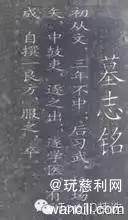 墓志铭
初从文、三年不中、后习武、校场
矢、中鼓吏、逐之出、遂学医、有
成、自撰一良方、服之、卒
@玩慈利网